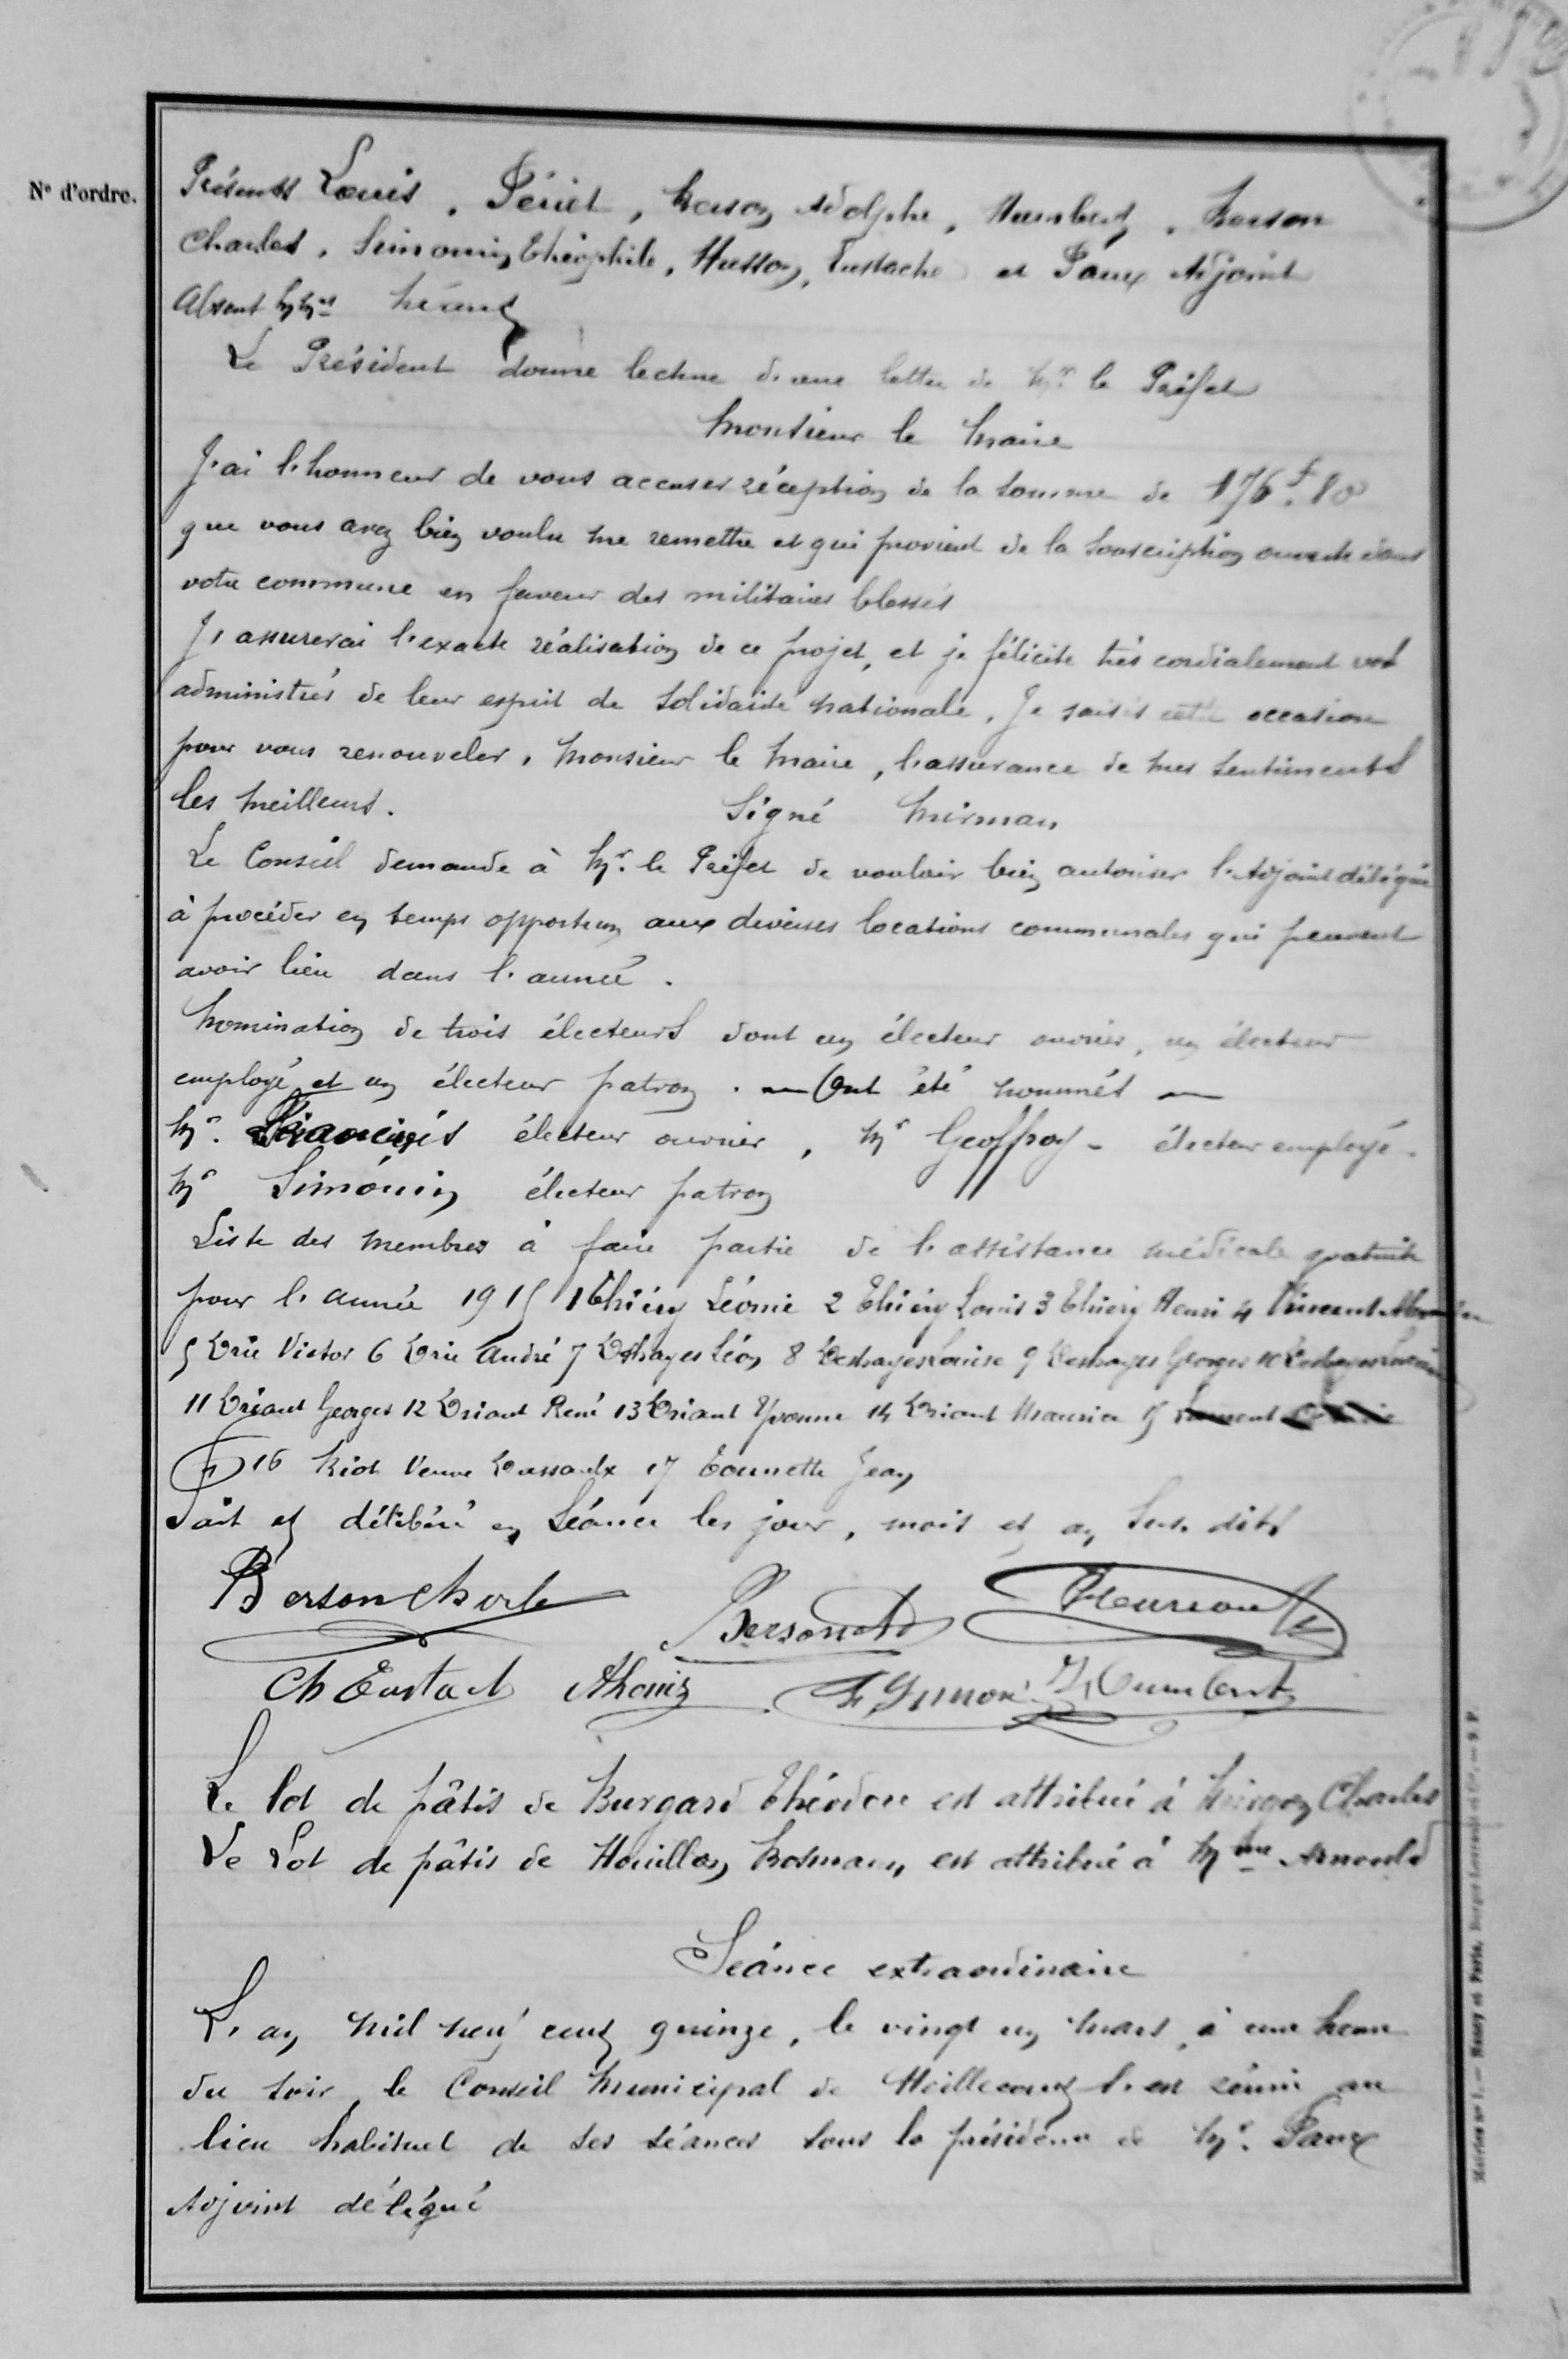 N° d'ordre.
Présents Louis, Périet, Berson Adolphe, Humbert, Berson
Charles, Simonin Théophile, Husson, Eustache et Paux Adjoint
Absent Mrs
Le Président donne lecture d'une lettre de Mr le Préfet
Monsieur le Maire
J'ai l'honneur de vous accuser réception de la somme de 176f.80
que vous avez bien voulu me remettre et qui provient de la souscription ouverte dans
votre commune en faveur des militaires blessés
J'assurerai l'exacte réalisation de ce projet, et je félicite très cordialement vos
administrés de leur esprit de solidarité nationale. Je saisis cette occasion
pour vous renouveler, Monsieur le Maire, l'assurance de mes sentiments
les meilleurs. Signé Mirman
Le Conseil demande à Mr. le Préfet de vouloir bien autoriser l'Adjoint délégué
à procéder en temps opportun aux diverses locations communales qui peuvent
avoir lieu dans l'année.
Nomination de trois électeurs dont un électeur ouvrier, un électeur
employé et un électeur patron. — Ont été nommés —
Mr. François électeur ouvrier, Mr Geoffroy - électeur employé.
Mr Simonin électeur patron
Liste des membres à faire partie de l'assistance médicale gratuite
pour l'année 1915 1 Thiéry Léonie 2 Thiéry Louis 3 Thiéry Henri 4 Vincent
5 Victor 6 André 7 Deshayes Léon 8 Deshayes Louise 9 Deshayes Georges 10 Deshayes
11 Briant Georges 12 Briant René 13 Briant Yvonne 14 Briant Maurice 15
16 Veuve 17 Tounette Jean
Fait et délibéré en séance les jour, mois et an sus. dits
Berson Charle Berson Ad
Ch Eustach ALouis T Simon Humbert
Le lot de pâtis de Burgard Théodore est attribué à Charles
Le Lot de pâtis de Houillon est attribué à Mme Arnould
Séance extraordinaire
L'an mil neuf cent quinze, le vingt un mars, à une heure
du soir le Conseil Municipal de Moillecourt s'est réuni au
lieu habituel de ses séances sous la présidence de Mr. Paux
Adjoint délégué
Nancy et Paris,